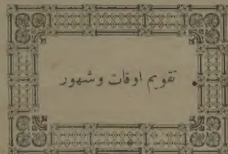 تقويم اوقات وشهور